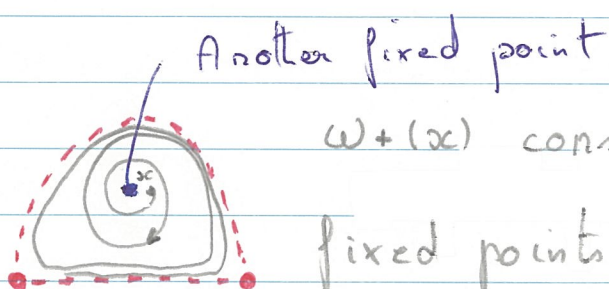 Another fixed point
x
ω+(x)
fixed points